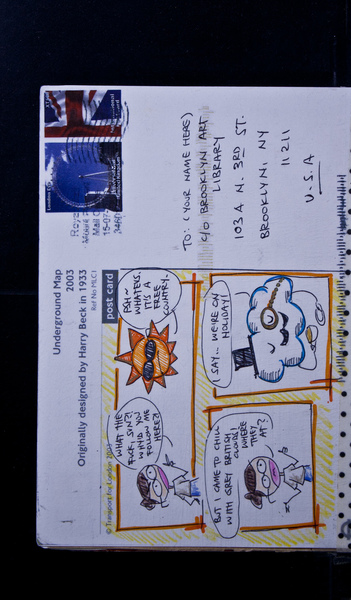 Underground Map
2003
Originally designed by Harry Beck in 1933
Ref No MLC1
post card
© Transport for London 2003
WHAT THE
FUCK, SUN?!
WHY'D YOU
FOLLOW ME
HERE?!
OSH~
WHATEVS.
IT'S A
FREE
COUNTRY.
BUT I CAME TO CHILL
WITH GREY BRITISH
CLOUDS!
WHERE
THEY
AT?
I SAY... WE'RE ON
HOLIDAY!
Roya
Mail
15-07
TO: (YOUR NAME HERE)
C/O BROOKLYN ART
LIBRARY
103A N. 3RD ST.
BROOKLYN, NY
11211
U.S.A